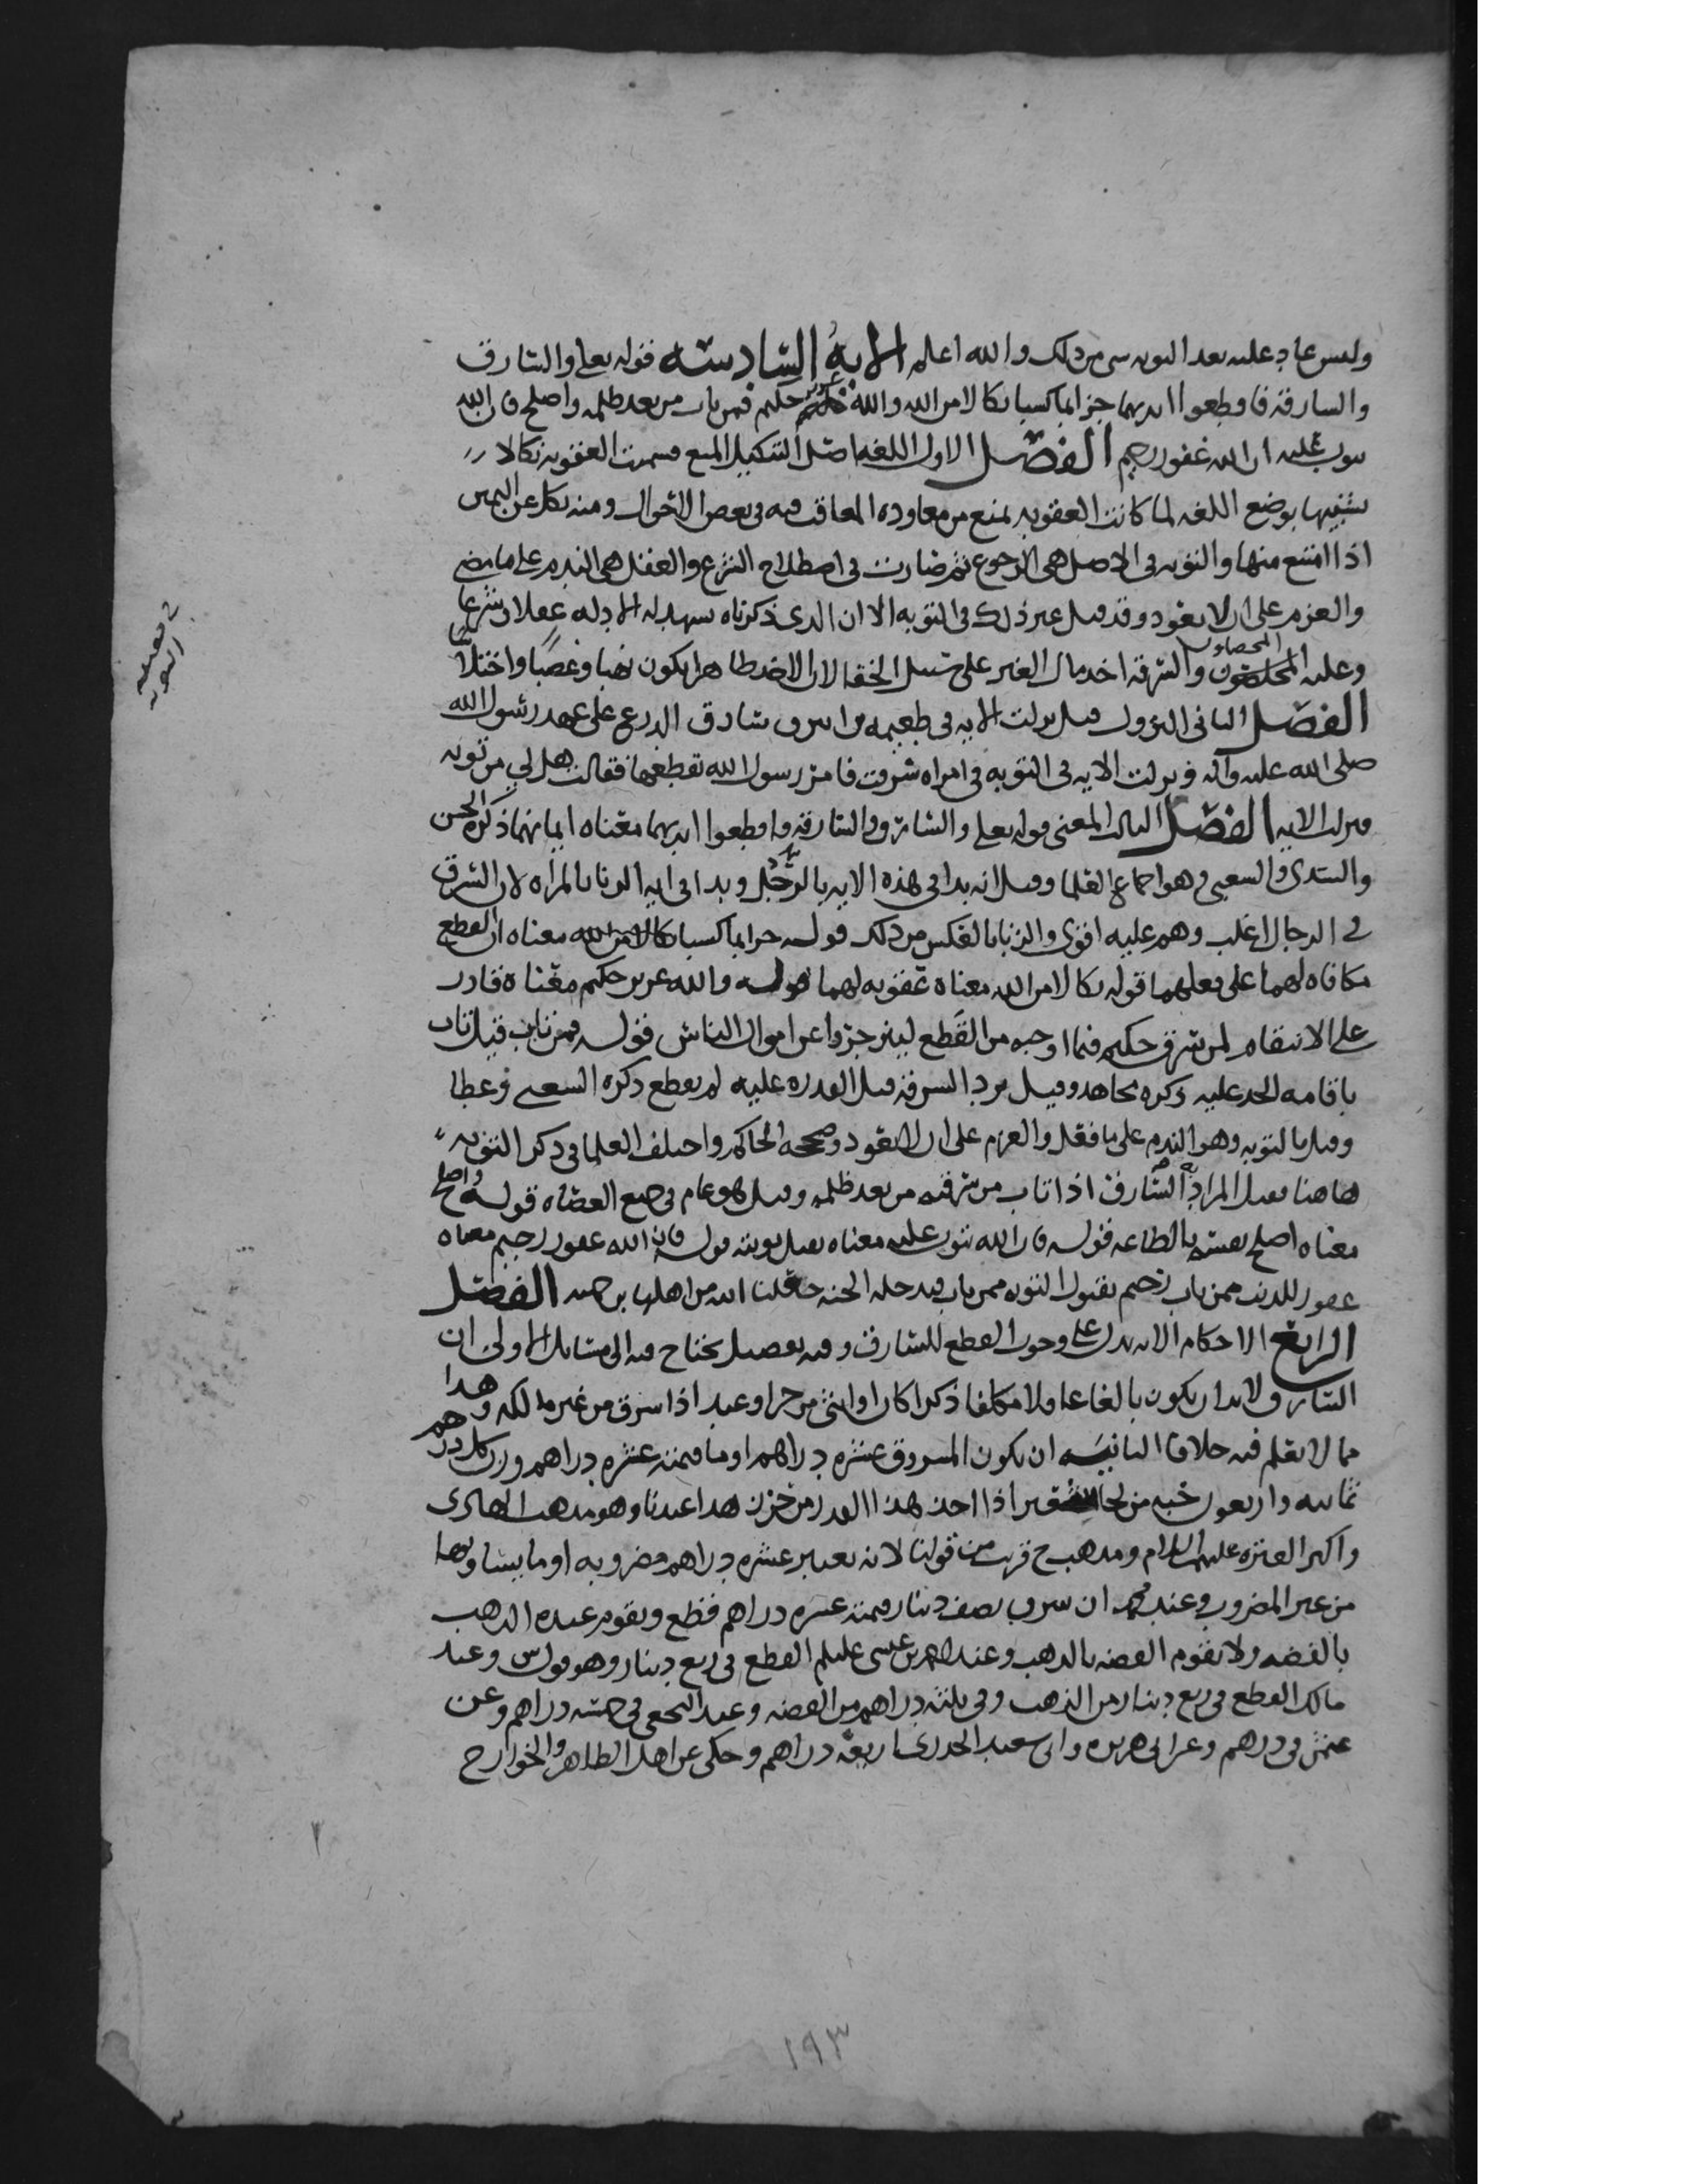 وليس عاد عليه بعد التوبه شي من ذلك والله اعلم الاية السادسة قوله تعلى والسارق
والسارقه فاقطعوا ايديهما جزا بما كسبا نكالا من الله والله عزيز حكيم فمن تاب من بعد ظلمه واصلح فان الله
يتوب عليه ان الله غفور رحيم الفصل الاول اللغه اصل التنكيل المنع وسميت العقوبه نكالا
بوضع اللغه لما كانت العقوبه تمنع من معاوده المعاقب فيه في بعض الاحوال ومنه نكل عن اليمين
اذا امتنع منها والتوبه في الاصل هي الرجوع ثم صارت في اصطلاح الشرع والعقل هي الندم على ما مضى
والعزم على ان لا يعود وقد قيل غير ذلك في التوبه الا ان الذي ذكرناه يشهد له الادله عقلا وشرعا
وعليه المحصلون والسرقه اخذ مال الغير على سبيل الخفا لان الاخذ ظاهرا يكون نهبا وغصبا واختلاسا
الفصل الثاني النزول قيل نزلت الايه في طعيمه بن ابيرق سارق الدرع على عهد رسول الله
صلى الله عليه وآله ونزلت الايه في التوبه في امراه سرقت فامر رسول الله بقطعها فقالت هل لي من توبه
فنزلت الايه الفصل الثالث المعنى قوله تعلى والسارق والسارقه فاقطعوا ايديهما معناه ايمانهما ذكره الحسن
والسدي والشعبي وهو اجماع العلما وقيل انه بدا في هذه الايه بالرجل وبدا في ايه الزنا بالمراه لان السرق
في الرجال اغلب وهم عليه اقوى والزنا بالعكس من ذلك قوله جزا بما كسبا نكالا من الله معناه ان القطع
مكافاه لهما على فعلهما قوله نكالا من الله معناه عقوبه لهما قوله والله عزيز حكيم معناه قادر
على الانتقام لمن سرق حكيم فيما اوجبه من القطع لينزجروا عن اموال الناس قوله فمن تاب قيل تاب
باقامه الحد عليه ذكره مجاهد وقيل برد السرقه قبل القدره عليه لم يقطع ذكره الشعبي وعطا
وقيل بالتوبه وهو الندم على ما فعل والعزم على ان لا يعود وصححه الحاكم واختلف العلما في ذكر التوبه
هاهنا فقيل المراد به السارق اذا تاب من سرقته من بعد ظلمه وقيل هو عام في جميع العصاه قوله واصلح
معناه اصلح نفسه بالطاعه قوله فان الله يتوب عليه معناه يقبل توبته قوله فان الله غفور رحيم معناه
غفور للذنب ممن تاب رحيم بقبول التوبه ممن تاب فيدخله الجنه جعلنا الله من اهلها برحمته الفصل
الرابع الاحكام الايه تدل على وجوب القطع للسارق وفيه تفصيل يحتاج فيه الى مسايل الاولى ان
السارق لا بد ان يكون بالغا عاقلا مكلفا ذكرا كان او انثى من حر او عبد اذا سرق من غير مالكه وهذا
مما لا نعلم فيه خلافا الثانيه ان يكون المسروق عشره دراهم او ما قيمته عشره دراهم وزن كل درهم
ثمانيه واربعون حبه من شعير اذا اخذ هذا القدر من حرز هذا عندنا وهو مذهب الهادي
واكثر العتره عليهم السلام ومذهب ح قريب من قولنا لانه يعتبر عشره دراهم مضروبه او ما يساويها
من غير المضروب وعند محمد ان سرق نصف دينار قيمته عشره دراهم قطع ويقوم عنده الذهب
بالفضه ولا تقوم الفضه بالذهب وعند احمد بن عيسى عليلم القطع في ربع دينار وهو قول س وعند
مالك القطع في ربع دينار من الذهب وفي ثلثه دراهم من الفضه وعند النخعي في خمسه دراهم وعن
عثمن في درهم وعن ابي هريره وابي سعيد الخدري اربعه دراهم وحكي عن اهل الظاهر والخوارج
١٩٣